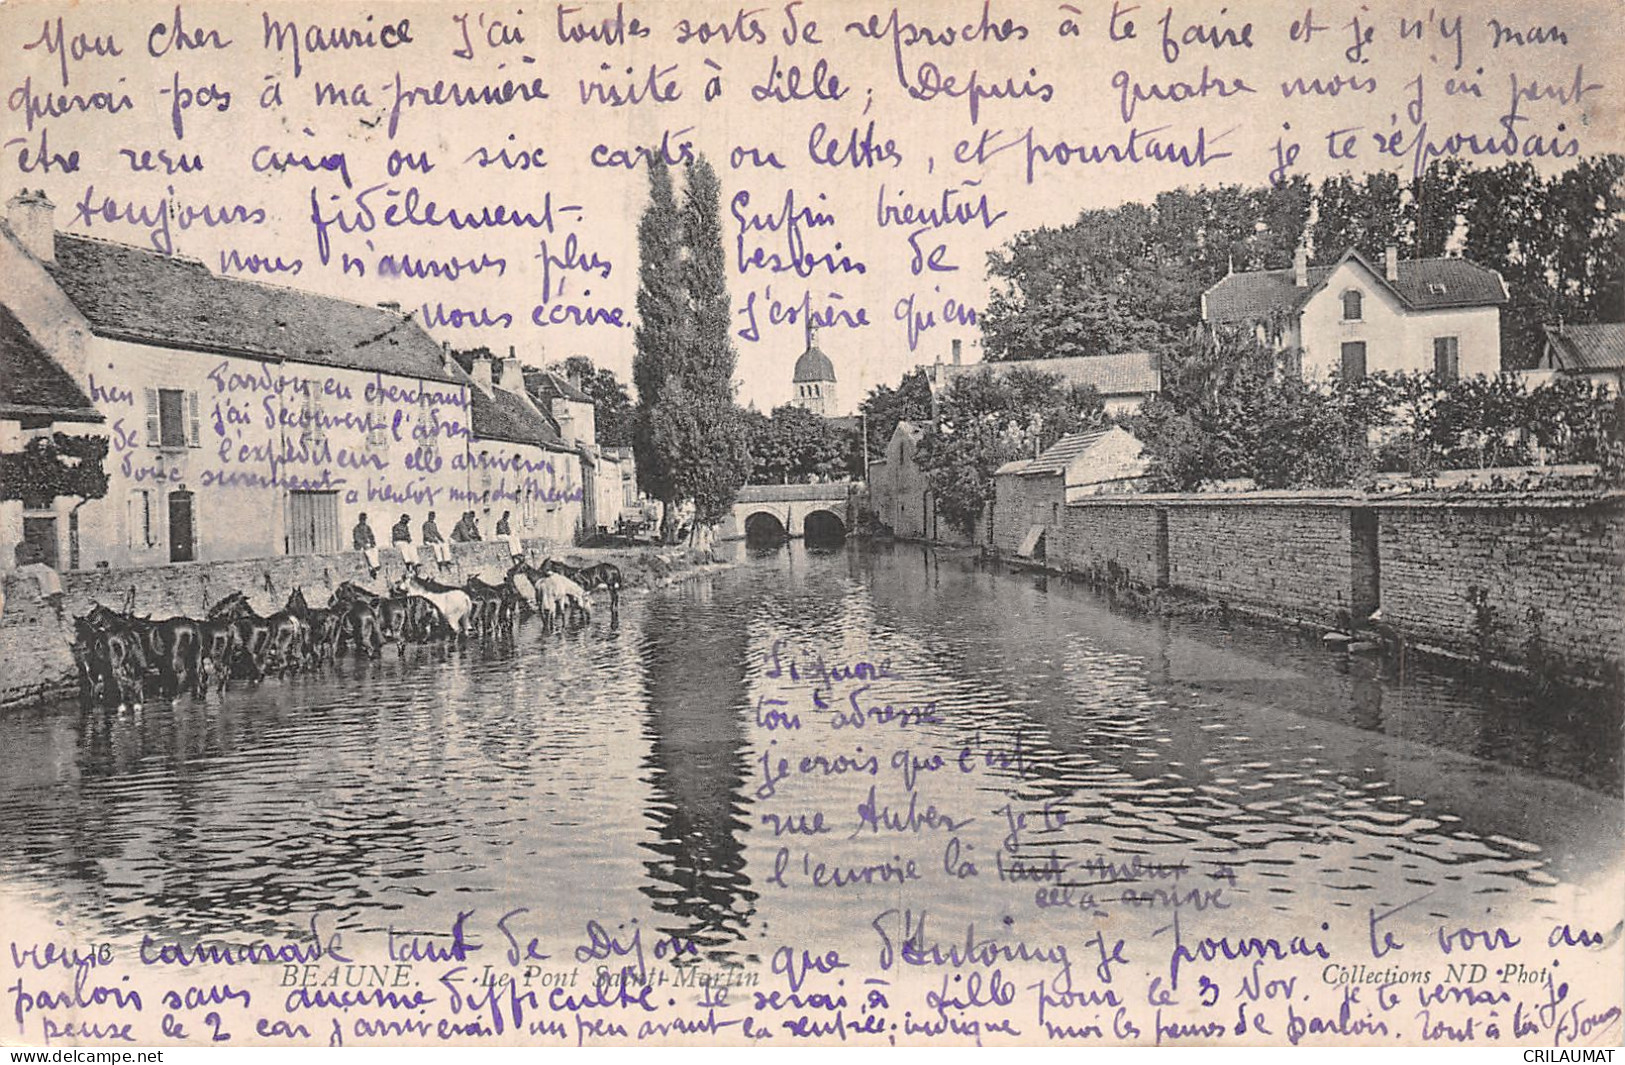 Mon cher Maurice J'ai toutes sorts de reproches à te faire et je n'y man
querai pas à ma première visite à Lille ; Depuis quatre mois j'ai peut
être reçu cinq ou six carts ou lettres, et pourtant je te répondais
toujours fidèlement. Enfin bientôt
nous n'aurons plus besoin de
nous écrire. J'espère qu'en
bien
de
Pardon en cherchant
j'ai découvert l'adres
l'expéditeur elle arrivera
donc surement a bientôt mon cher
J'ignore
ton adresse
je crois que c'est
rue Auber je te
l'envoie là tant mieux si
cela arrive
vieux camarade tant de Dijon que d'Antoing je pourrai te voir au
16 BEAUNE. - Le Pont Saint-Martin
Collections ND Phot
parloir sans aucune difficulté. Je serai à Lille pour le 3 Nov. je te verrai je
pense le 2 car j'arriverai un peu avant la rentrée ; indique moi les heures de parloir. Tout à toi
CRILAUMAT